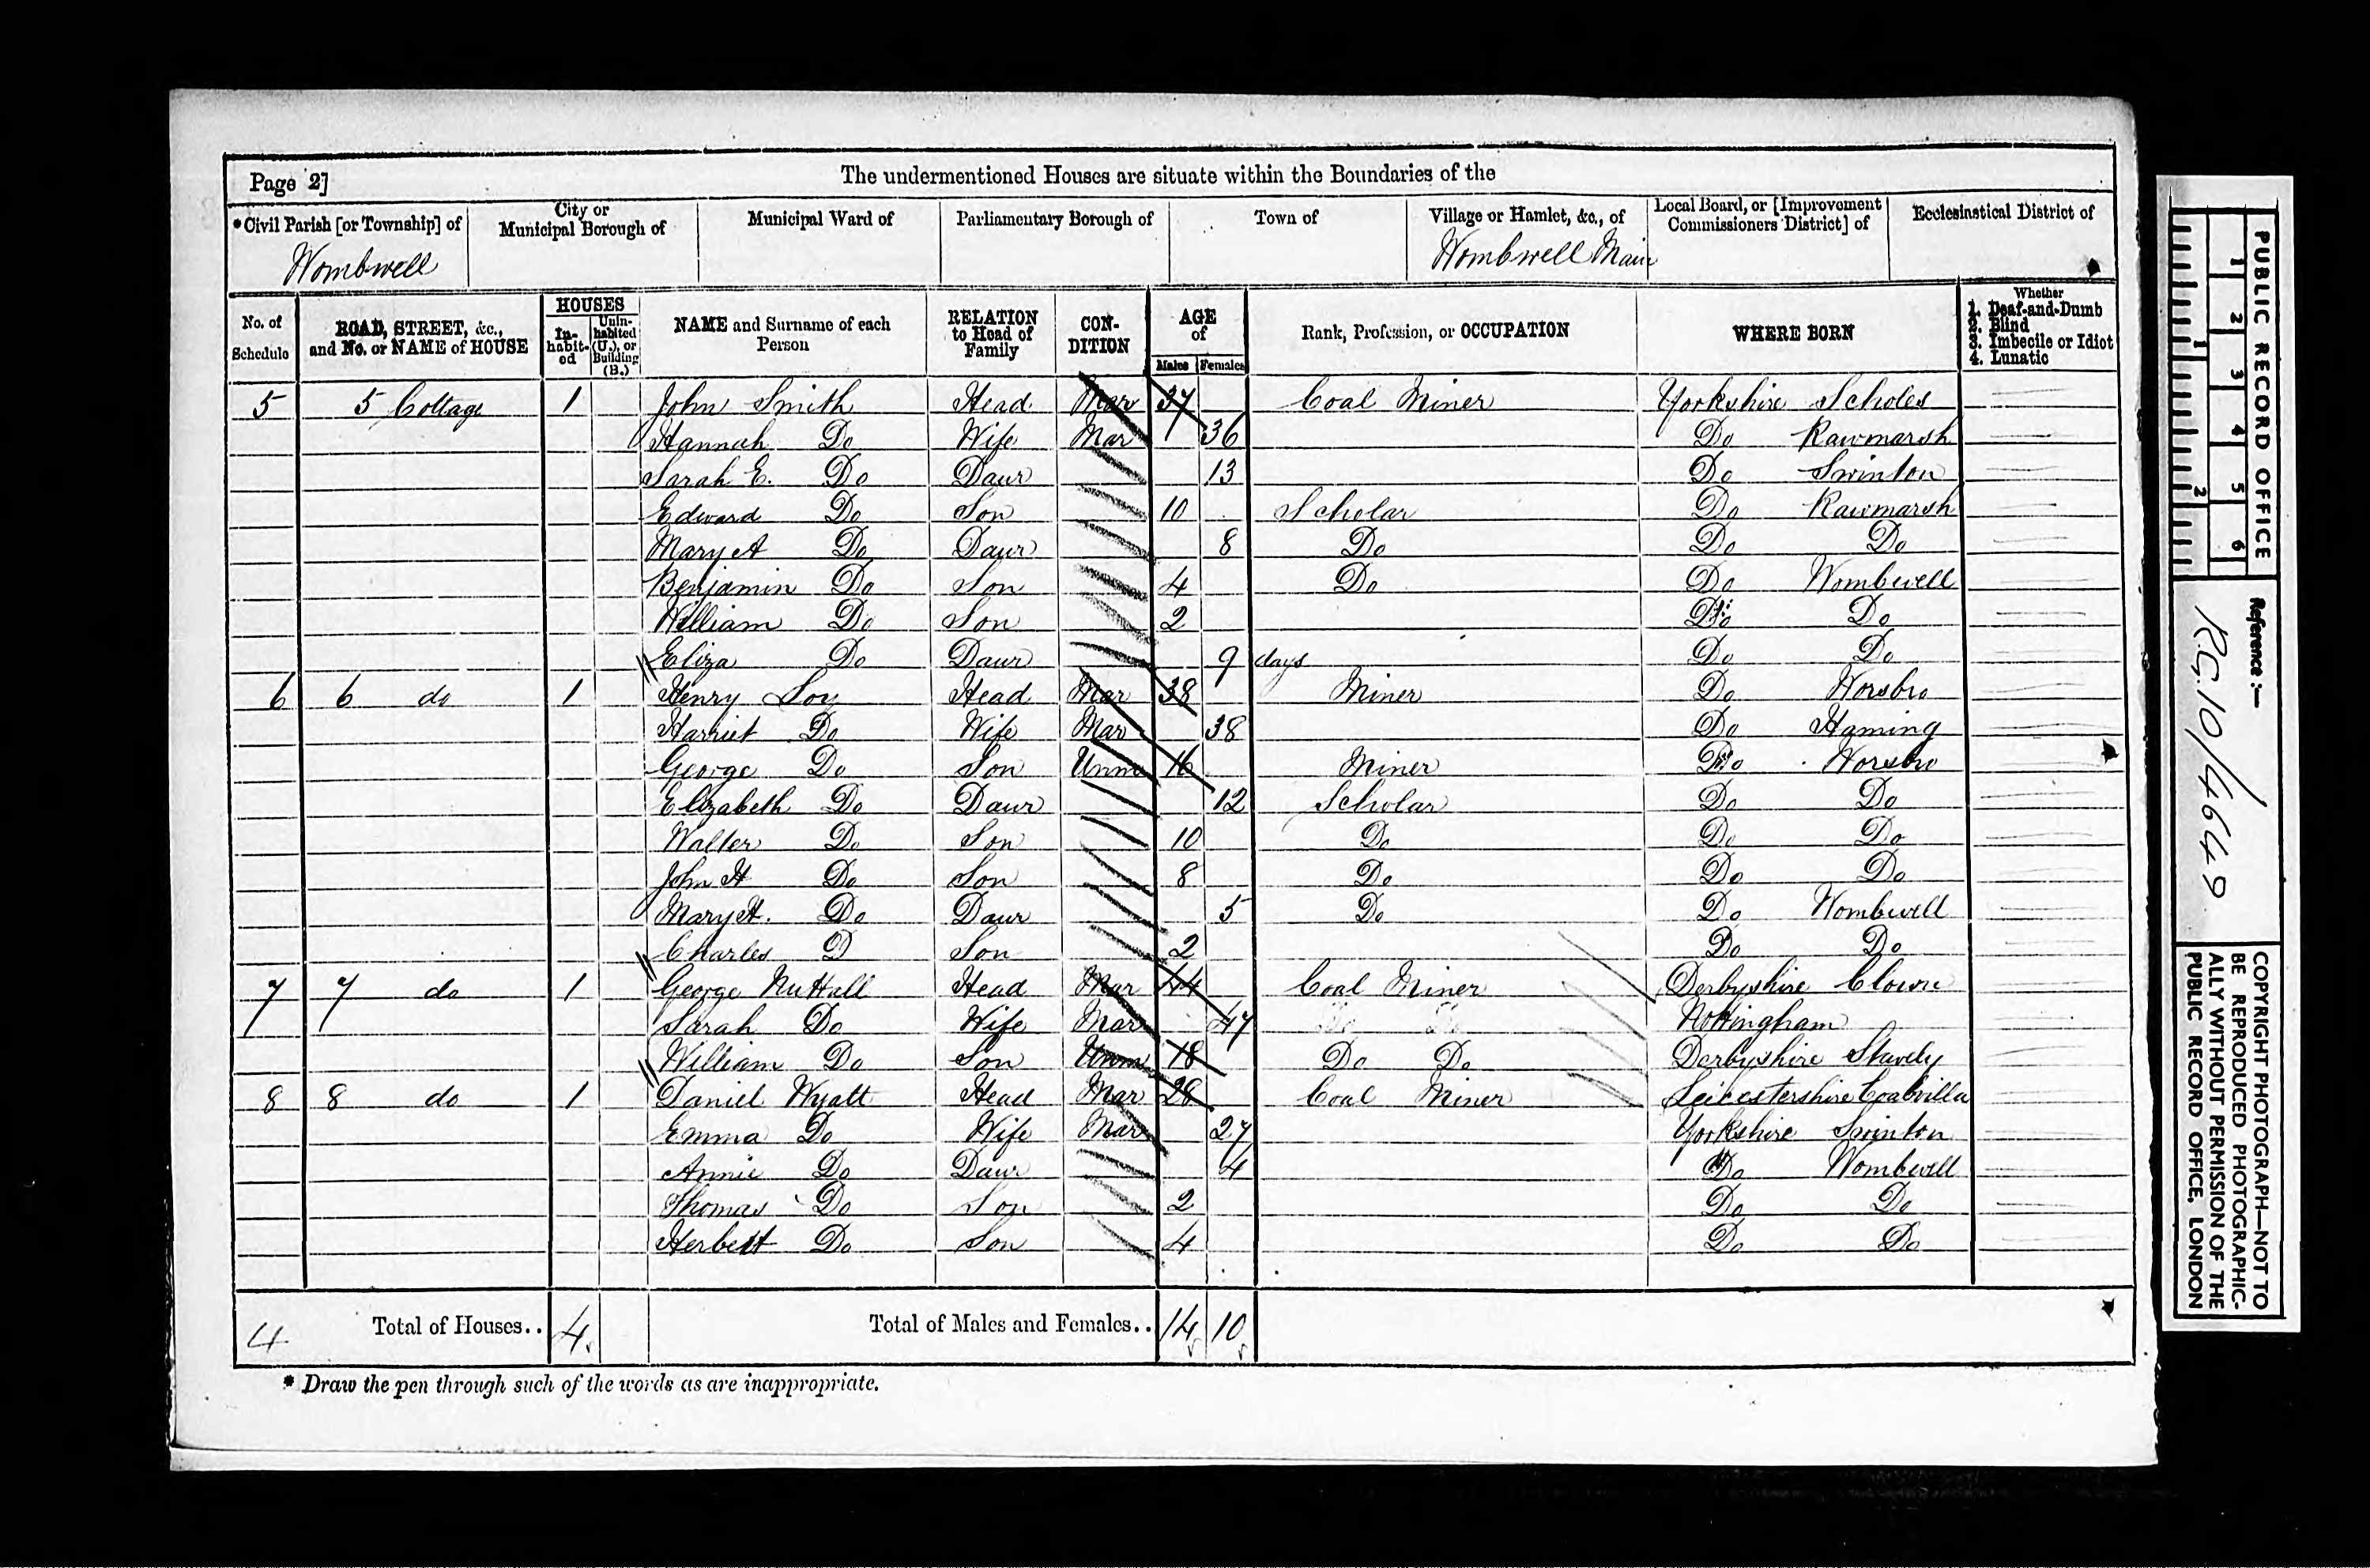 Page 2]
The undermentioned Houses are situate within the Boundaries of the
*Civil Parish [or Township] of
City or Municipal Borough of
Municipal Ward of
Parliamentary Borough of
Town of
Village or Hamlet, &c., of
Local Board, or [Improvement Commissioners District] of
Ecclesiastical District of
Wombwell
Wombwell Main
No. of Schedule
ROAD, STREET, &c., and No. or NAME of HOUSE
HOUSES
In-habit-ed
Unin-habited (U.), or Building (B.)
NAME and Surname of each Person
RELATION to Head of Family
CON-DITION
AGE of
Males
Females
Rank, Profession, or OCCUPATION
WHERE BORN
Whether
1. Deaf-and-Dumb
2. Blind
3. Imbecile or Idiot
4. Lunatic
5 5 Cottage 1 John Smith Head Mar 37 Coal Miner Yorkshire Scholes
Hannah Do Wife Mar 36 Do Rawmarsh
Sarah E. Do Daur 13 Do Swinton
Edward Do Son 10 Scholar Do Rawmarsh
Mary A Do Daur 8 Do Do Do
Benjamin Do Son 4 Do Do Wombwell
William Do Son 2 Do Do
Eliza Do Daur 9 days Do Do
6 6 do 1 Henry Loy Head Mar 38 Miner Do Worsbro
Harriet Do Wife Mar 38 Do Haming
George Do Son Unm 16 Miner Do Worsbro
Elizabeth Do Daur 12 Scholar Do Do
Walter Do Son 10 Do Do Do
John H Do Son 8 Do Do Do
Mary H. Do Daur 5 Do Do Wombwell
Charles D Son 2 Do Do
7 7 do 1 George Nuttall Head Mar 44 Coal Miner Derbyshire Clown
Sarah Do Wife Mar 47 Nottingham
William Do Son Unm 18 Do Do Derbyshire Stavely
8 8 do 1 Daniel Wyatt Head Mar 28 Coal Miner Leicestershire Coalvilla
Emma Do Wife Mar 27 Yorkshire Swinton
Annie Do Daur 4 Do Wombwell
Thomas Do Son 2 Do Do
Herbett Do Son 4 Do Do
4 Total of Houses.. 4 Total of Males and Females.. 14 10
* Draw the pen through such of the words as are inappropriate.
PUBLIC RECORD OFFICE
1 2 3 4 5 6
1 2
Reference :—
R.G. 10/4649
COPYRIGHT PHOTOGRAPH—NOT TO
BE REPRODUCED PHOTOGRAPHIC-
ALLY WITHOUT PERMISSION OF THE
PUBLIC RECORD OFFICE, LONDON